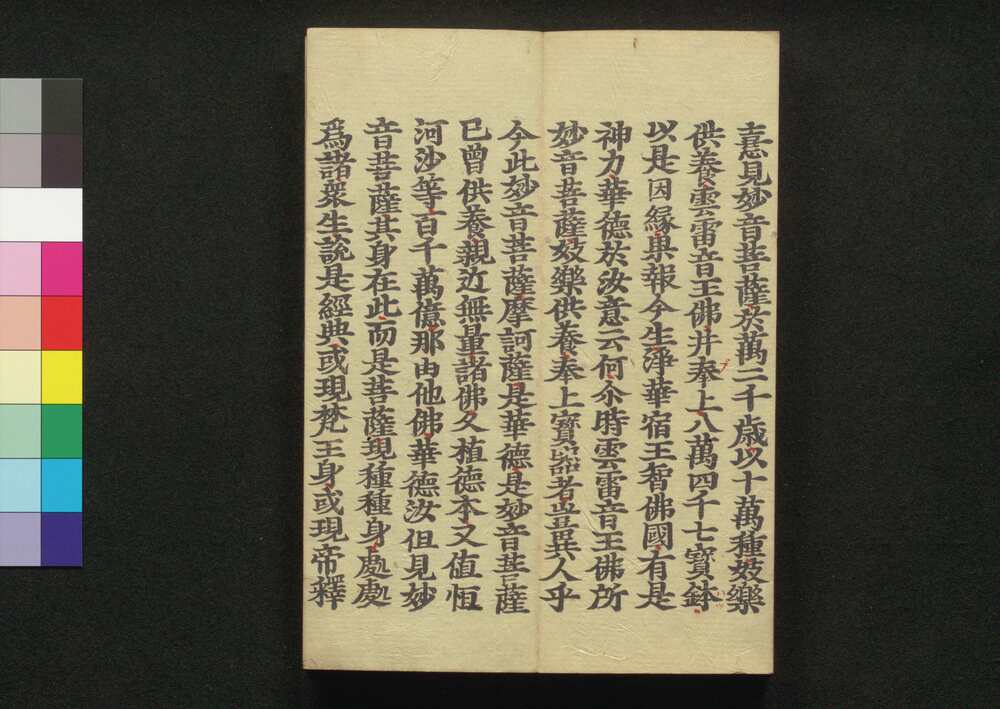 憙見妙音菩薩於萬二千歲以十萬種妓樂
供養雲雷音王佛并奉上八萬四千七寶鉢
以是因緣果報今生淨華宿王智佛國有是
神力華德於汝意云何尒時雲雷音王佛所
妙音菩薩妓樂供養奉上寶器者豈異人乎
今此妙音菩薩摩訶薩是華德是妙音菩薩
已曾供養親近無量諸佛久植德本又值恒
河沙等百千萬億那由他佛華德汝但見妙
音菩薩其身在此而是菩薩現種種身處處
爲諸衆生說是經典或現梵王身或現帝釋